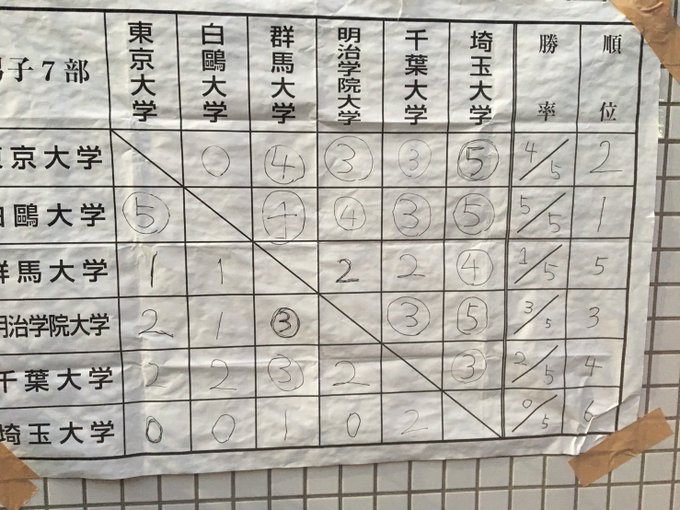 男子7部 東京大学 白鷗大学 群馬大学 明治学院大学 千葉大学 埼玉大学 勝率 順位
東京大学 0 ④ ③ ③ ⑤ 4/5 2
白鷗大学 ⑤ ④ ④ ③ ⑤ 5/5 1
群馬大学 1 1 2 2 ④ 1/5 5
明治学院大学 2 1 ③ ③ ⑤ 3/5 3
千葉大学 2 2 ③ 2 ③ 2/5 4
埼玉大学 0 0 1 0 2 0/5 6